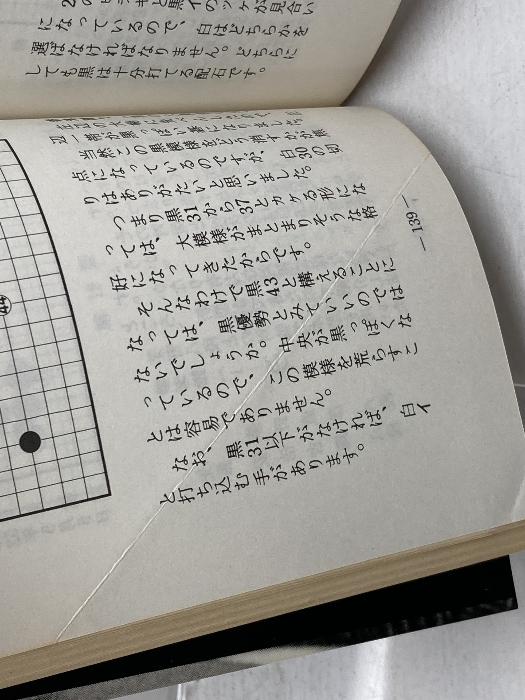 2のヒラキと黒イのツケが見合い
になっているので、白はどちらかを
選ばなければなりません。どちらに
しても黒は十分打てる配石です。
辺一帯が黒っぽい碁になりました。
当然この黒模様をどう消すかが焦
点になっているのですが、白30の切
りはありがたいと思いました。
つまり黒31から37とカケる形にな
っては、大模様がまとまりそうな格
好になってきたからです。
そんなわけで黒43と構えることに
なっては、黒優勢とみていいのでは
ないでしょうか。中央が黒っぽくな
っているので、この模様を荒らすこ
とは容易でありません。
なお、黒31以下がなければ、白イ
と打ち込む手があります。
—139—
44